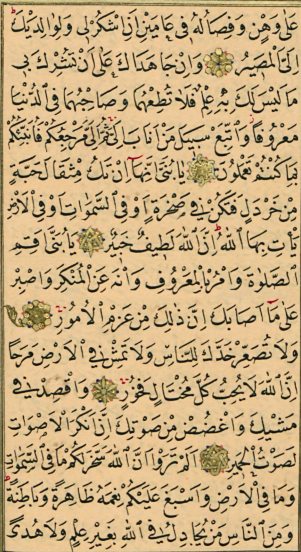 عَلٰى وَهْنٍ وَفِصَالُهُ فِي عَامَيْنِ اَنِ اشْكُرْ لِي وَلِوَالِدَيْكَ
اِلَيَّ الْمَصِيرُ وَاِنْ جَاهَدَاكَ عَلٰى اَنْ تُشْرِكَ بِي
مَا لَيْسَ لَكَ بِهِ عِلْمٌ فَلَا تُطِعْهُمَا وَصَاحِبْهُمَا فِي الدُّنْيَا
مَعْرُوفًا وَاتَّبِعْ سَبِيلَ مَنْ اَنَابَ اِلَيَّ ثُمَّ اِلَيَّ مَرْجِعُكُمْ فَاُنَبِّئُكُمْ
بِمَا كُنْتُمْ تَعْمَلُونَ يَا بُنَيَّ اِنَّهَا اِنْ تَكُ مِثْقَالَ حَبَّةٍ
مِنْ خَرْدَلٍ فَتَكُنْ فِي صَخْرَةٍ اَوْ فِي السَّمٰوَاتِ اَوْ فِي الْاَرْضِ
يَأْتِ بِهَا اللهُ اِنَّ اللهَ لَطِيفٌ خَبِيرٌ يَا بُنَيَّ اَقِمِ
الصَّلٰوةَ وَأْمُرْ بِالْمَعْرُوفِ وَانْهَ عَنِ الْمُنْكَرِ وَاصْبِرْ
عَلٰى مَا اَصَابَكَ اِنَّ ذٰلِكَ مِنْ عَزْمِ الْاُمُورِ
وَلَا تُصَعِّرْ خَدَّكَ لِلنَّاسِ وَلَا تَمْشِ فِي الْاَرْضِ مَرَحًا
اِنَّ اللهَ لَا يُحِبُّ كُلَّ مُخْتَالٍ فَخُورٍ وَاقْصِدْ فِي
مَشْيِكَ وَاغْضُضْ مِنْ صَوْتِكَ اِنَّ اَنْكَرَ الْاَصْوَاتِ
لَصَوْتُ الْحَمِيرِ اَلَمْ تَرَوْا اَنَّ اللهَ سَخَّرَ لَكُمْ مَا فِي السَّمٰوَاتِ
وَمَا فِي الْاَرْضِ وَاَسْبَغَ عَلَيْكُمْ نِعَمَهُ ظَاهِرَةً وَبَاطِنَةً
وَمِنَ النَّاسِ مَنْ يُجَادِلُ فِي اللهِ بِغَيْرِ عِلْمٍ وَلَا هُدًى